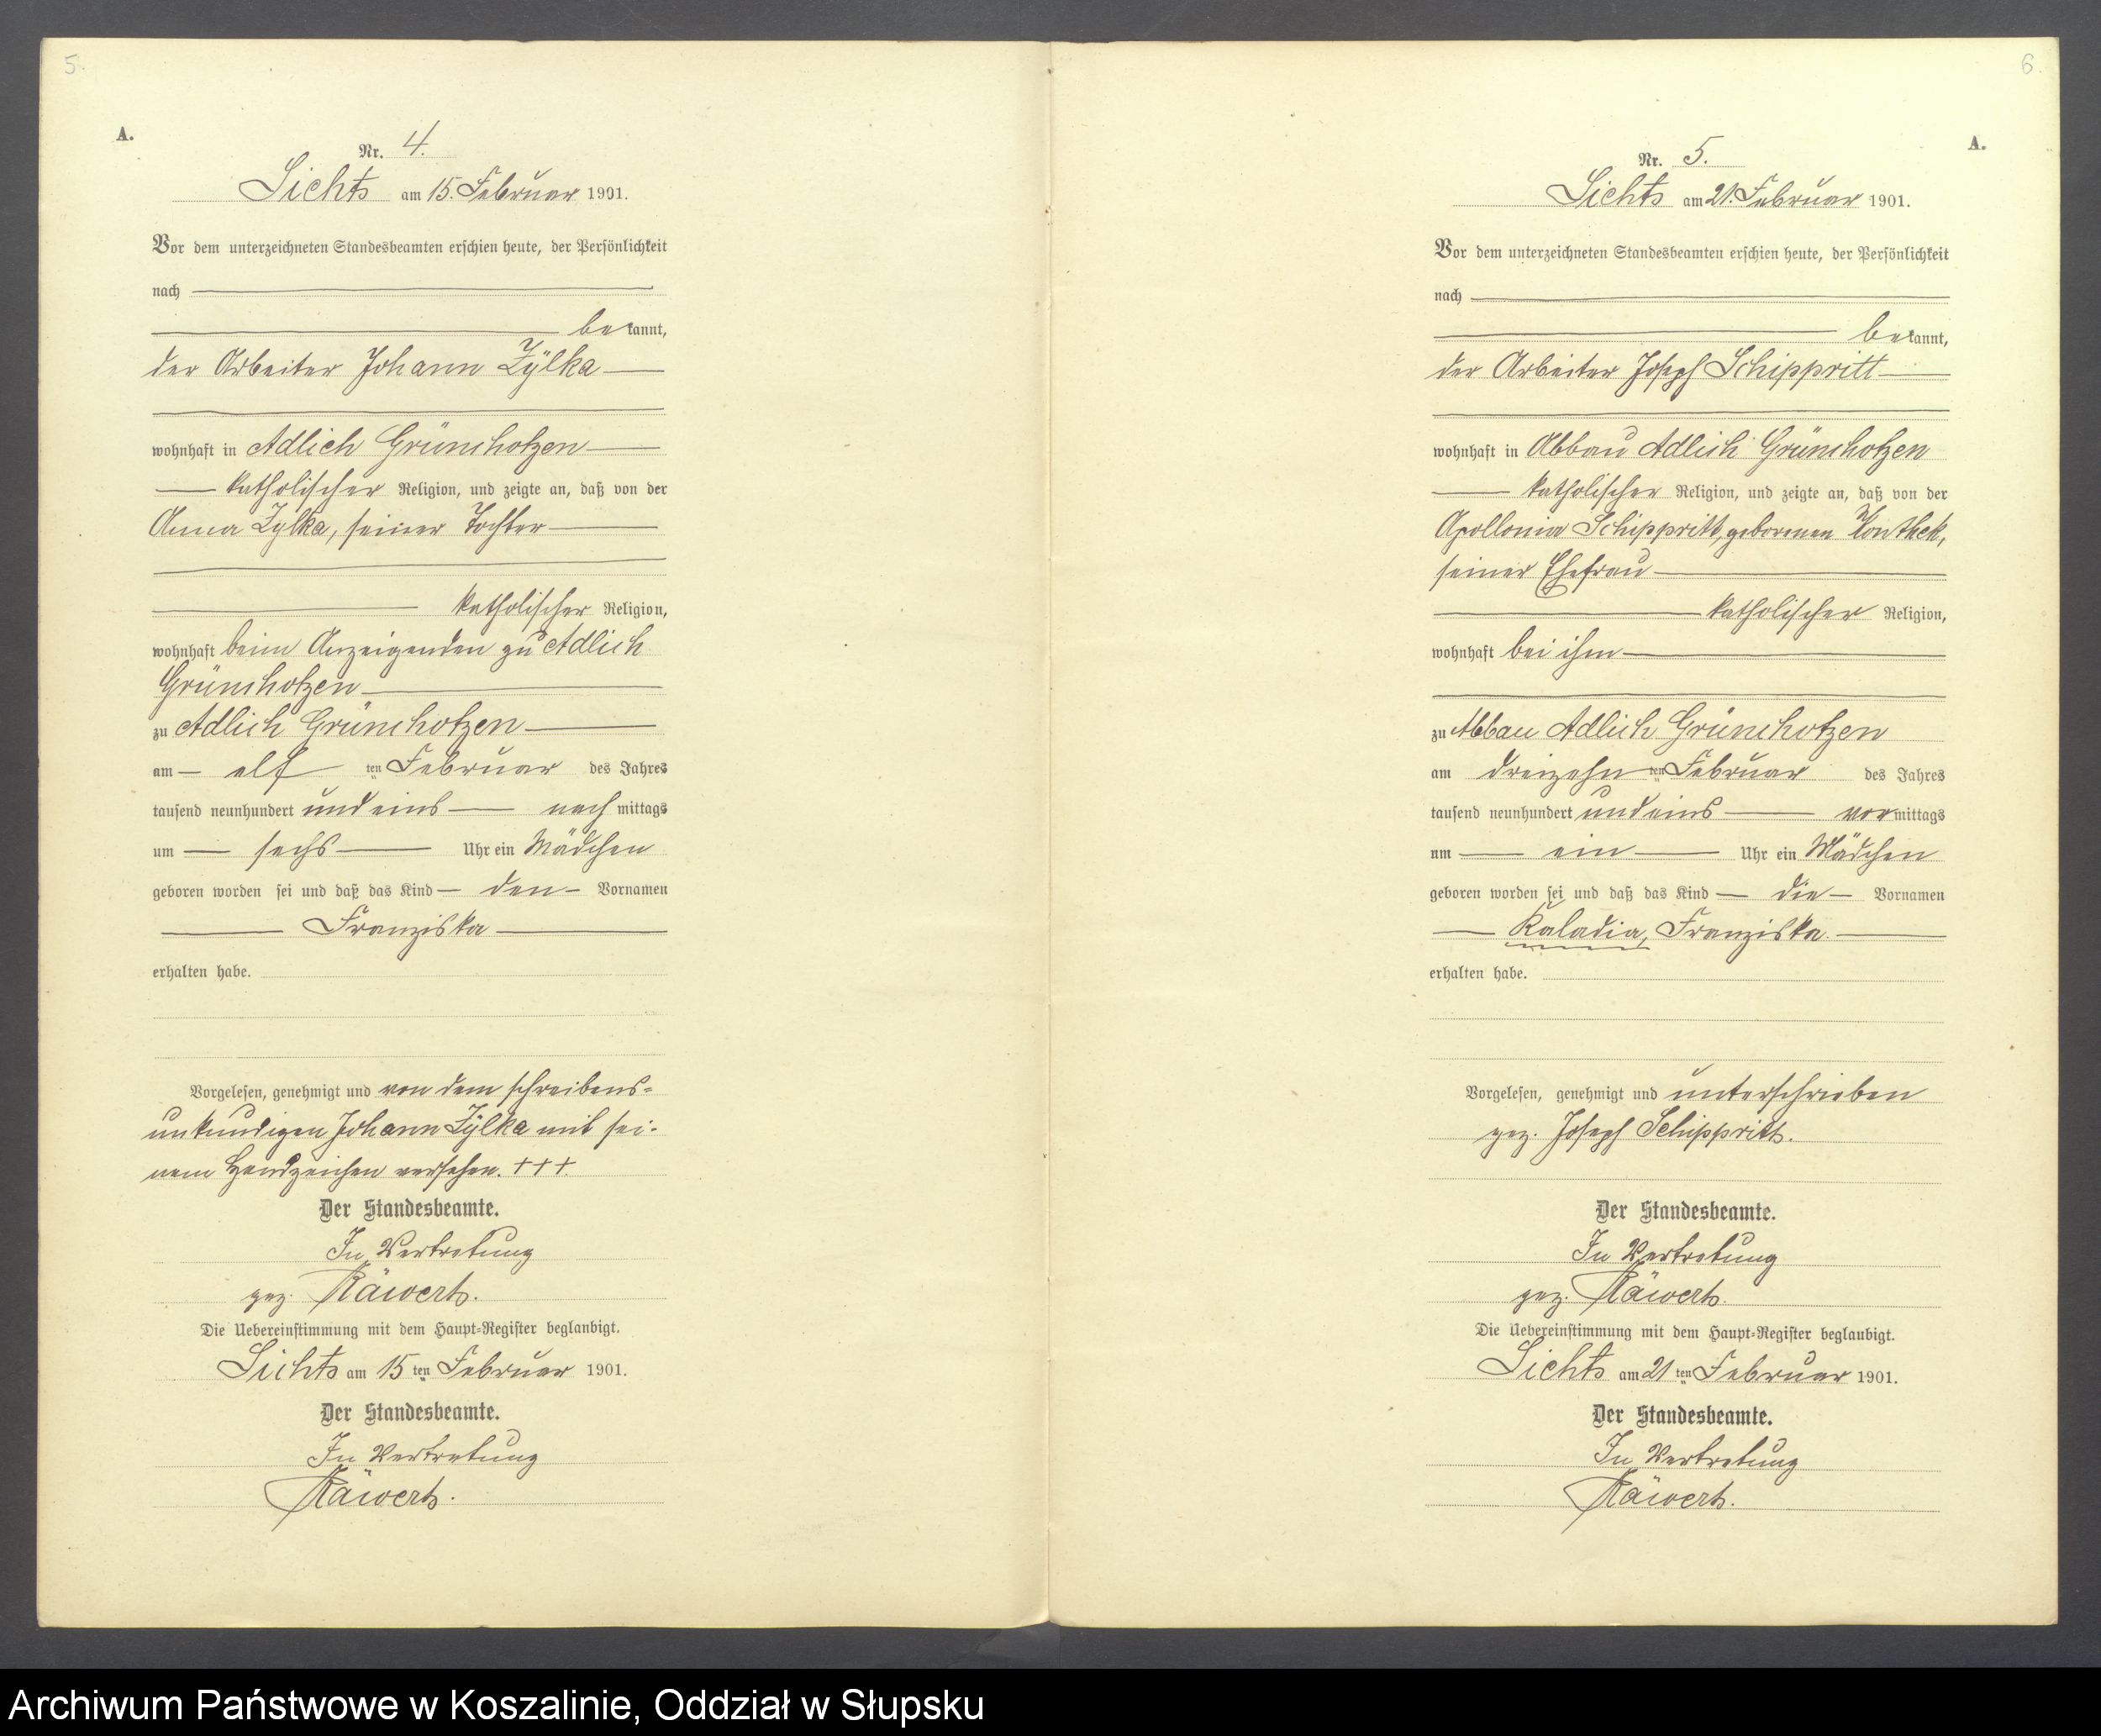 5.
A.
Nr. 4.
Lichts am 15. Februar 1901.
Vor dem unterzeichneten Standesbeamten erschien heute, der Persönlichkeit
nach
bekannt,
der Arbeiter Johann Zÿlka
wohnhaft in Adlich Grünchotzen
katholischer Religion, und zeigte an, daß von der
Anna Zylka, seiner Tochter
katholischer Religion,
wohnhaft beim Anzeigenden zu Adlich
Grünchotzen
zu Adlich Grünchotzen
am elf ten Februar des Jahres
tausend neunhundert und eins nach mittags
um sechs Uhr ein Mädchen
geboren worden sei und daß das Kind den Vornamen
Franziska
erhalten habe.
Vorgelesen, genehmigt und von dem schreibens-
unkundigen Johann Zÿlka mit sei-
nem Handzeichen versehen. +++.
Der Standesbeamte.
In Vertretung
gez. Räwert.
Die Uebereinstimmung mit dem Haupt-Register beglaubigt.
Lichts am 15 ten Februar 1901.
Der Standesbeamte.
In Vertretung
Räwert.
6.
A.
Nr. 5.
Lichts am 21. Februar 1901.
Vor dem unterzeichneten Standesbeamten erschien heute, der Persönlichkeit
nach
bekannt,
der Arbeiter Joseph Schippritt
wohnhaft in Abbau Adlich Grünchotzen
katholischer Religion, und zeigte an, daß von der
Apollonia Schippritt, geborenen Konthek,
seiner Ehefrau
katholischer Religion,
wohnhaft bei ihm
zu Abbau Adlich Grünchotzen
am dreizehn ten Februar des Jahres
tausend neunhundert und eins vormittags
um ein Uhr ein Mädchen
geboren worden sei und daß das Kind die Vornamen
Kaladia, Franziska
erhalten habe.
Vorgelesen, genehmigt und unterschrieben
gez. Joseph Schippritt.
Der Standesbeamte.
In Vertretung
gez. Räwert.
Die Uebereinstimmung mit dem Haupt-Register beglaubigt.
Lichts am 21 ten Februar 1901.
Der Standesbeamte.
In Vertretung
Räwert.
Archiwum Państwowe w Koszalinie, Oddział w Słupsku